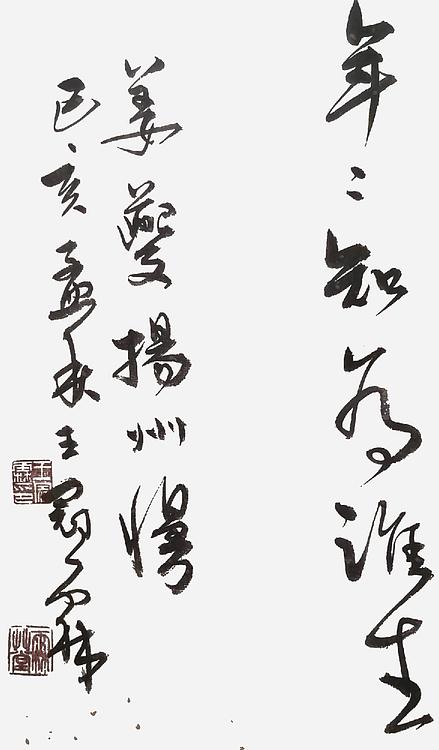 年〻知為誰生
姜夔揚州慢
己亥孟秋王